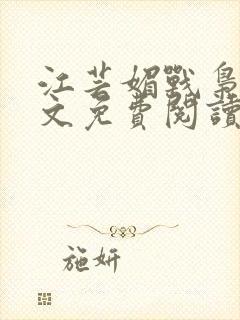 江芸媚戰梟
文免費閱讀
施妍